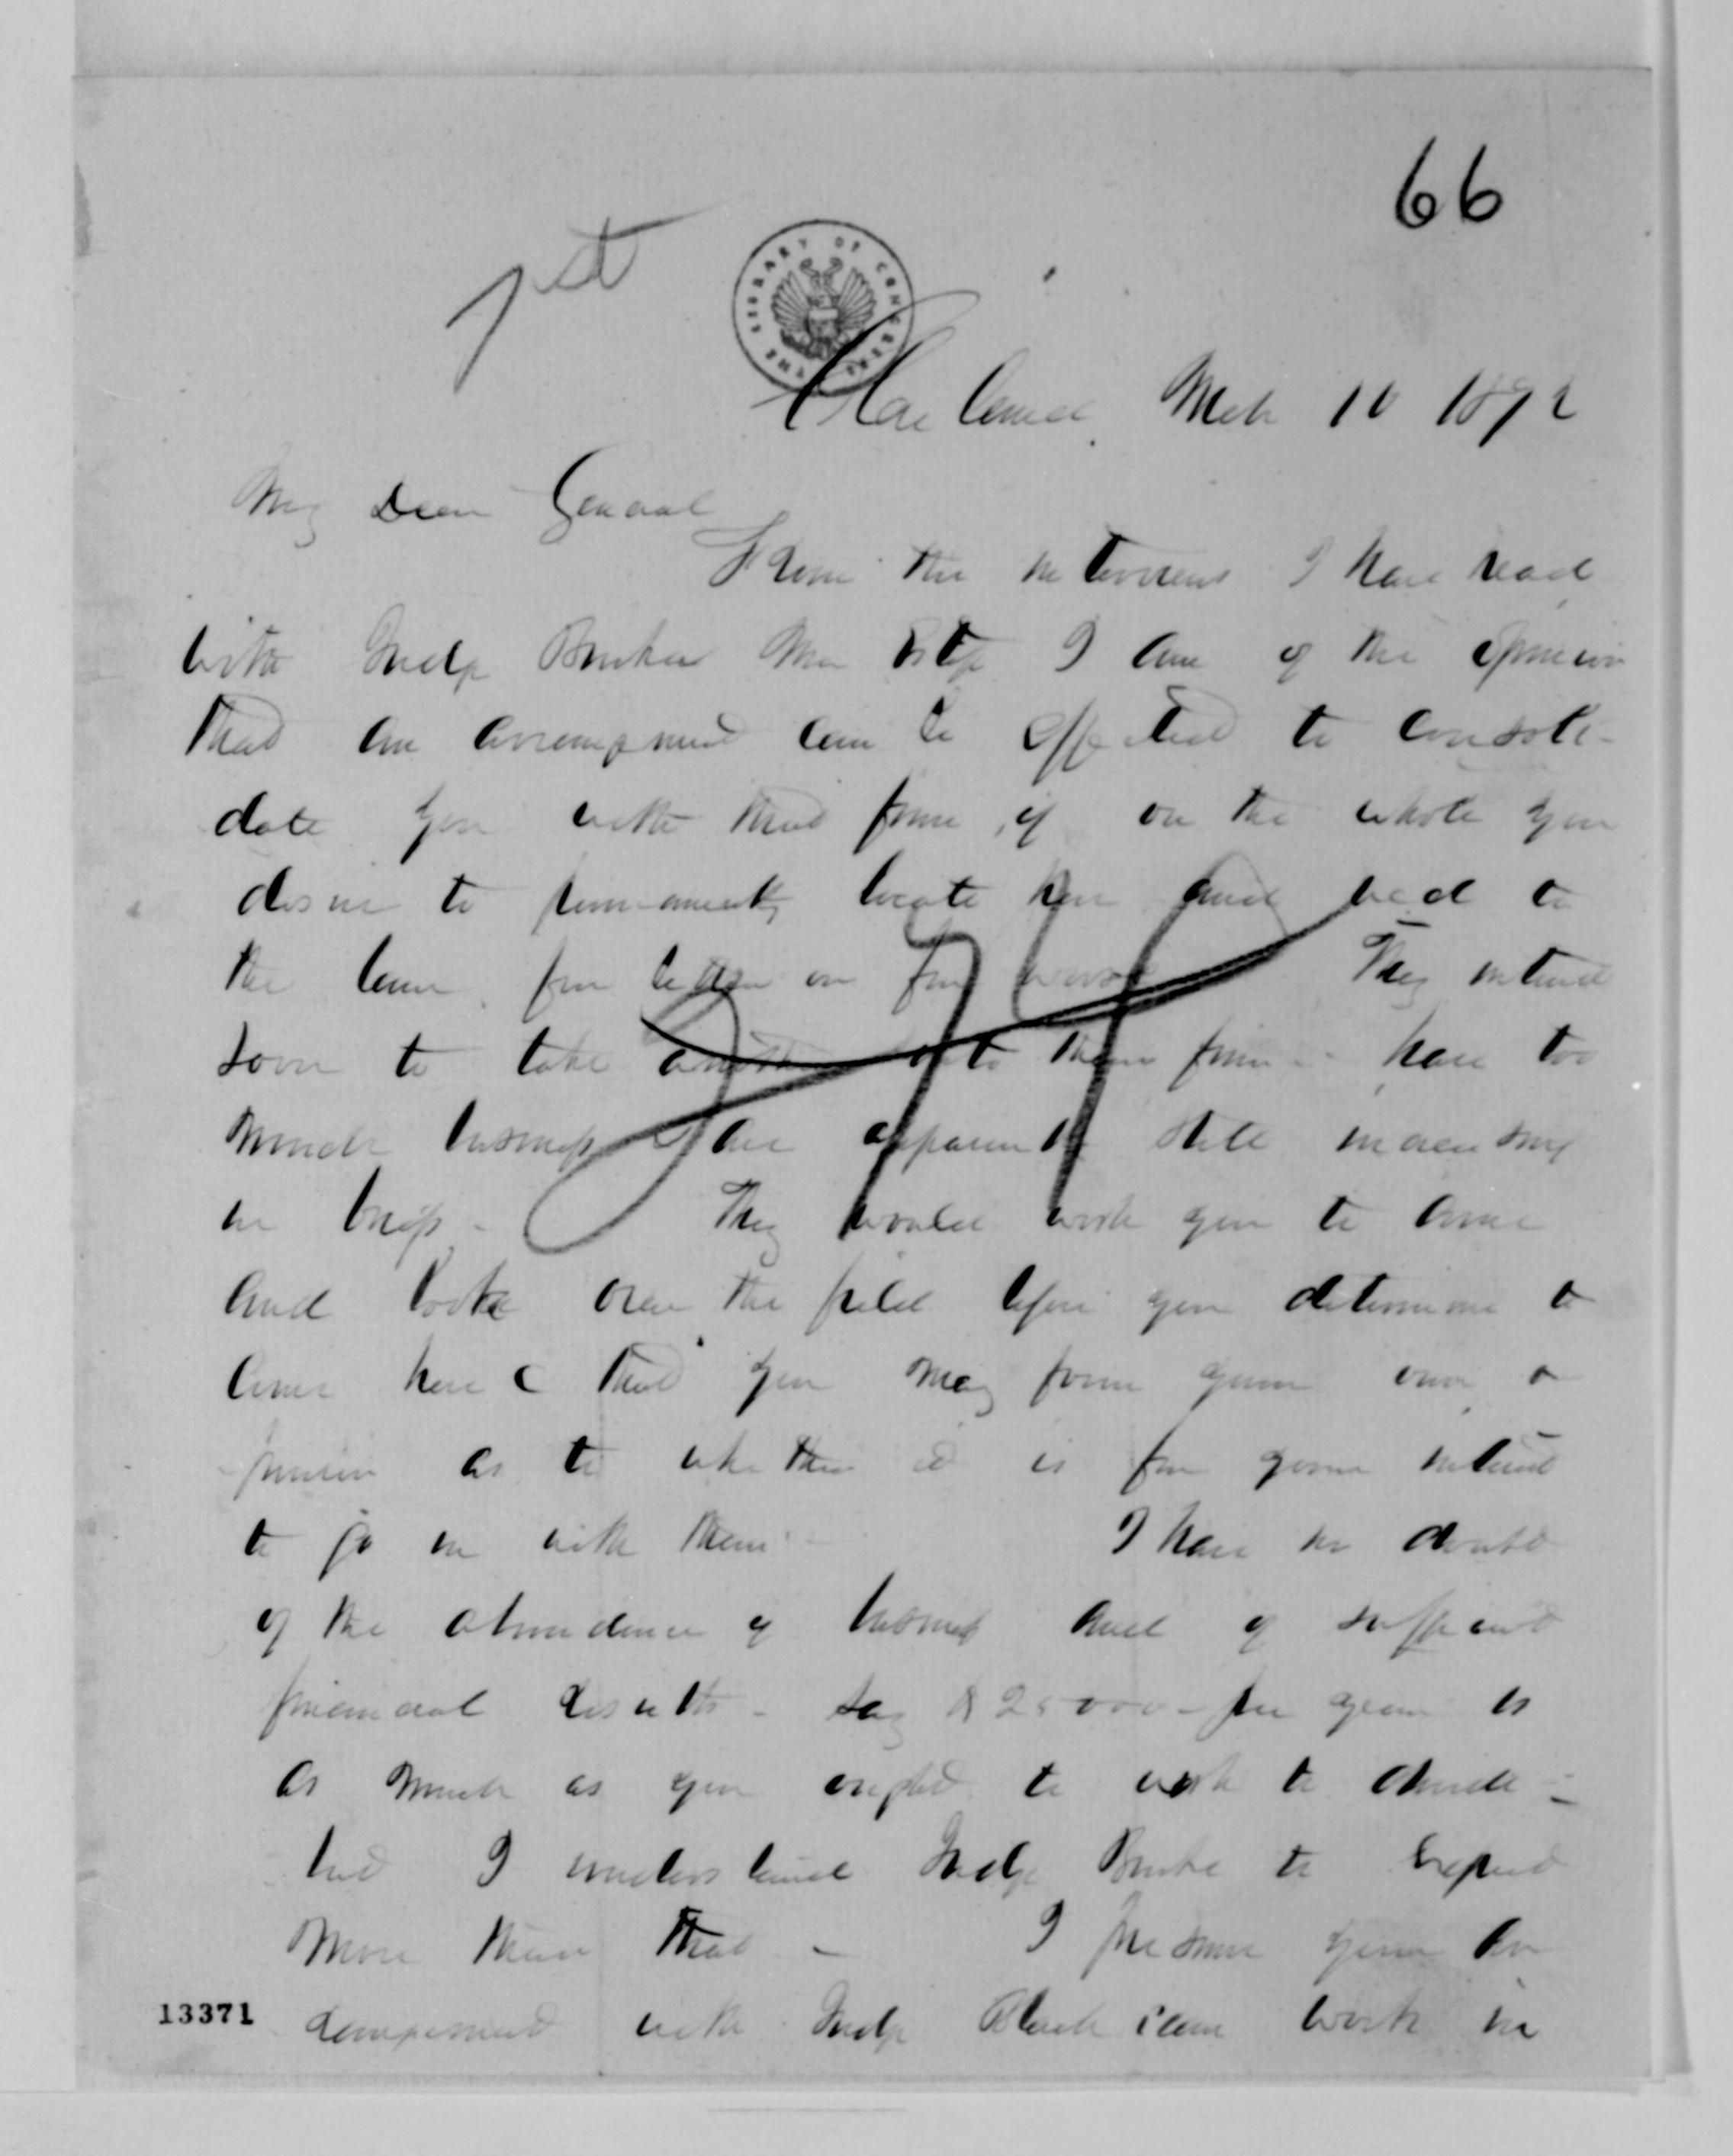 66
THE LIBRARY OF CONGRESS
Cleveland. Mch 10 1872
My Dear General
From the interviews I have had
with Judge Burke I am of the opinion
that an arrangement can be effected to consoli-
date you with their firm, if on the whole you
desire to permanently locate here and wed to
the law, for better or for worse They intend
soon to take another into their firm - have too
much business & are apparently still increasing
in busss - They would wish you to come
and look over the field before you determine to
come here & that you may form your own o
pinion as to whether it is for your interest
to go in with them - I have no doubt
of the abundance of business and of sufficient
financial results - say $25000 - per year is
as much as you ought to wish to divide -
but I understand Judge Burke to expect
more than that - I presume your ar
rangement with Judge Black can work in
13371